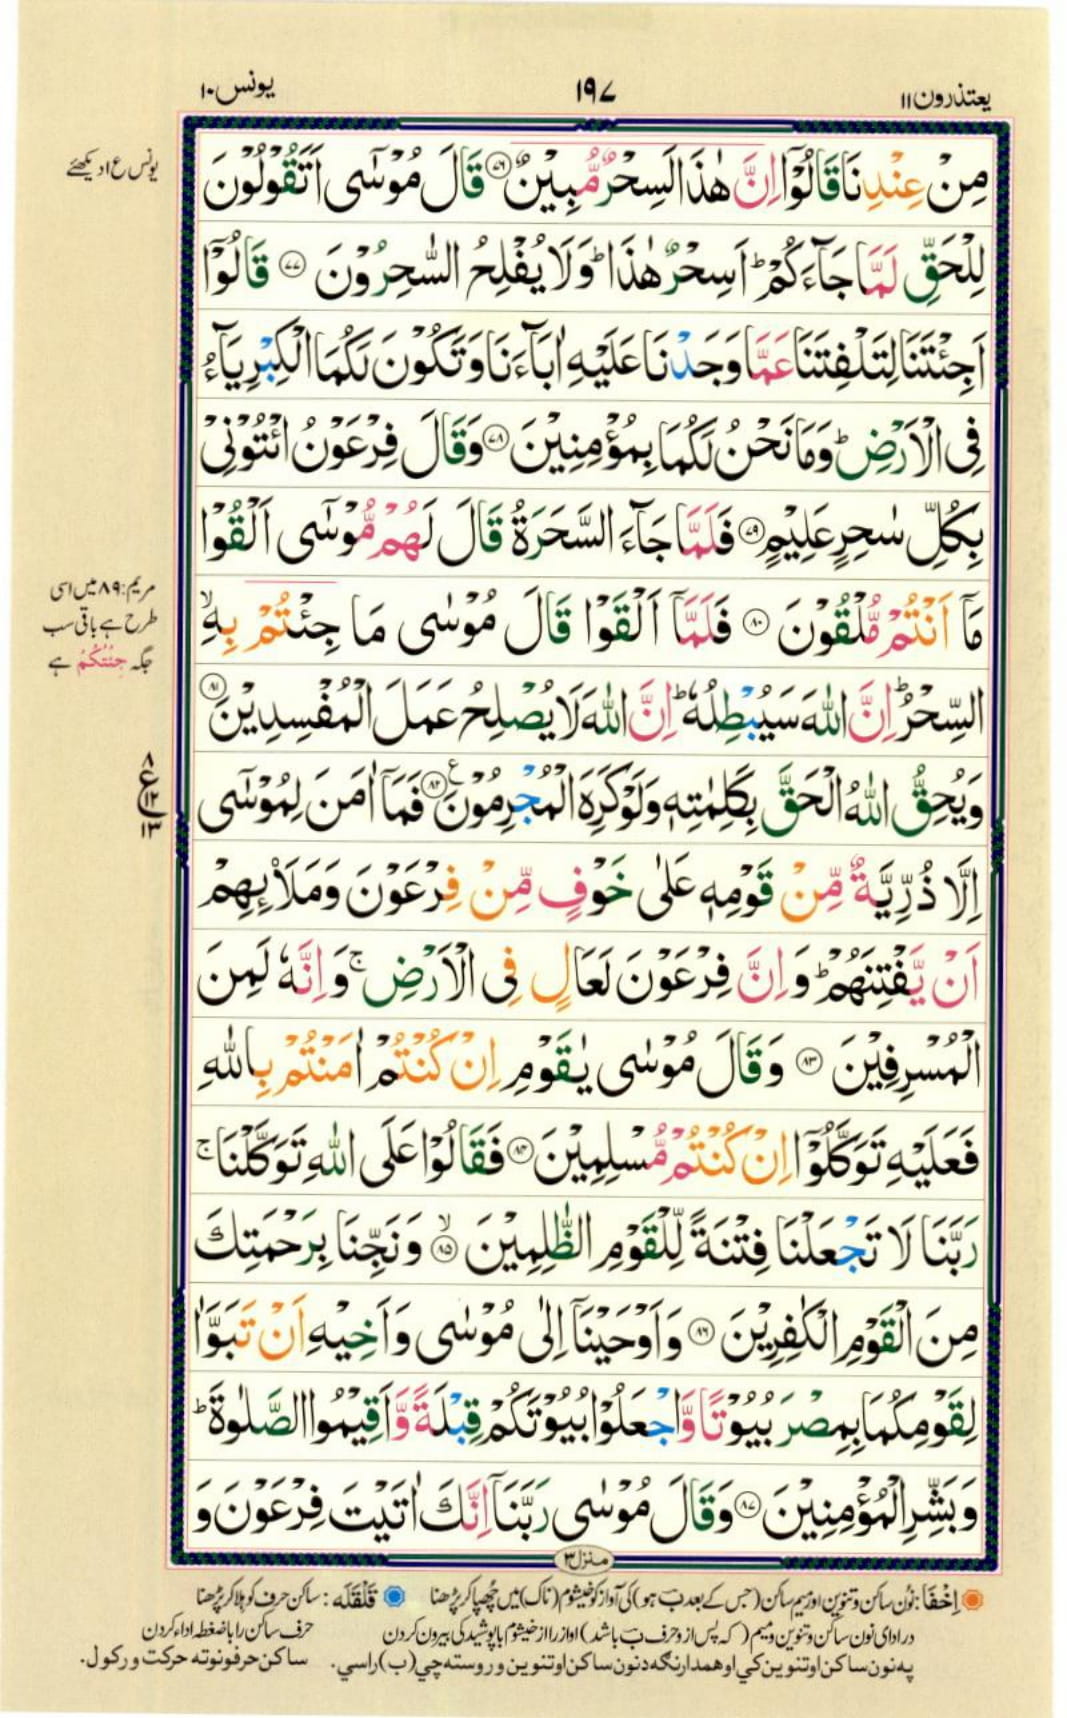 یعتذرون ۱۱
۱۹۷
یونس ۱۰
مِنْ عِنْدِنَا قَالُوْۤا اِنَّ هٰذَا لَسِحْرٌ مُّبِيْنٌ ﴿۷۶﴾ قَالَ مُوْسٰۤى اَتَقُوْلُوْنَ
یونس ع ۱ دیکھئے
لِلْحَقِّ لَمَّا جَآءَكُمْ ؕ اَسِحْرٌ هٰذَا ؕ وَلَا يُفْلِحُ السّٰحِرُوْنَ ﴿۷۷﴾ قَالُوْۤا
اَجِئْتَنَا لِتَلْفِتَنَا عَمَّا وَجَدْنَا عَلَيْهِ اٰبَآءَنَا وَتَكُوْنَ لَكُمَا الْكِبْرِيَآءُ
فِى الْاَرْضِ ؕ وَمَا نَحْنُ لَكُمَا بِمُؤْمِنِيْنَ ﴿۷۸﴾ وَقَالَ فِرْعَوْنُ ائْتُوْنِىْ
بِكُلِّ سٰحِرٍ عَلِيْمٍ ﴿۷۹﴾ فَلَمَّا جَآءَ السَّحَرَةُ قَالَ لَهُمْ مُّوْسٰۤى اَلْقُوْا
مَاۤ اَنْتُمْ مُّلْقُوْنَ ﴿۸۰﴾ فَلَمَّاۤ اَلْقَوْا قَالَ مُوْسٰى مَا جِئْتُمْ بِهِ ۙ
مریم: ۸۹ میں اسی
طرح ہے باقی سب
جگہ جِئْتُكُمْ ہے
السِّحْرُ ؕ اِنَّ اللّٰهَ سَيُبْطِلُهٗ ؕ اِنَّ اللّٰهَ لَا يُصْلِحُ عَمَلَ الْمُفْسِدِيْنَ ﴿۸۱﴾
وَيُحِقُّ اللّٰهُ الْحَقَّ بِكَلِمٰتِهٖ وَلَوْ كَرِهَ الْمُجْرِمُوْنَ ﴿۸۲﴾ ع فَمَاۤ اٰمَنَ لِمُوْسٰۤى
۸
ع
۱۲
۱۳
اِلَّا ذُرِّيَّةٌ مِّنْ قَوْمِهٖ عَلٰى خَوْفٍ مِّنْ فِرْعَوْنَ وَمَلَا۟ئِهِمْ
اَنْ يَّفْتِنَهُمْ ؕ وَاِنَّ فِرْعَوْنَ لَعَالٍ فِى الْاَرْضِ ۚ وَاِنَّهٗ لَمِنَ
الْمُسْرِفِيْنَ ﴿۸۳﴾ وَقَالَ مُوْسٰى يٰقَوْمِ اِنْ كُنْتُمْ اٰمَنْتُمْ بِاللّٰهِ
فَعَلَيْهِ تَوَكَّلُوْۤا اِنْ كُنْتُمْ مُّسْلِمِيْنَ ﴿۸۴﴾ فَقَالُوْا عَلَى اللّٰهِ تَوَكَّلْنَا ۚ
رَبَّنَا لَا تَجْعَلْنَا فِتْنَةً لِّلْقَوْمِ الظّٰلِمِيْنَ ۙ﴿۸۵﴾ وَنَجِّنَا بِرَحْمَتِكَ
مِنَ الْقَوْمِ الْكٰفِرِيْنَ ﴿۸۶﴾ وَاَوْحَيْنَاۤ اِلٰى مُوْسٰى وَاَخِيْهِ اَنْ تَبَوَّاٰ
لِقَوْمِكُمَا بِمِصْرَ بُيُوْتًا وَّاجْعَلُوْا بُيُوْتَكُمْ قِبْلَةً وَّاَقِيْمُوا الصَّلٰوةَ ؕ
وَبَشِّرِ الْمُؤْمِنِيْنَ ﴿۸۷﴾ وَقَالَ مُوْسٰى رَبَّنَاۤ اِنَّكَ اٰتَيْتَ فِرْعَوْنَ وَ
منزل ۳
اِخْفَا: نُون ساکن و تنوین اور میم ساکن (جس کے بعد بَ ہو) کی آواز کو خیشوم (ناک) میں چُھپا کر پڑھنا قَلْقَلَه: ساکن حرف کو ہلا کر پڑھنا
در ادای نون ساکن و تنوین و میم (که پس از و حرف بَ باشد) آواز را از خیشوم با پوشیدگی بیرون کردن حرف ساکن را با ضغطه اداء کردن
په نون ساکن او تنوین کي او همدارنګه د نون ساکن او تنوین وروسته چي (ب) راسي. ساکن حرفو نو ته حرکت ورکول.